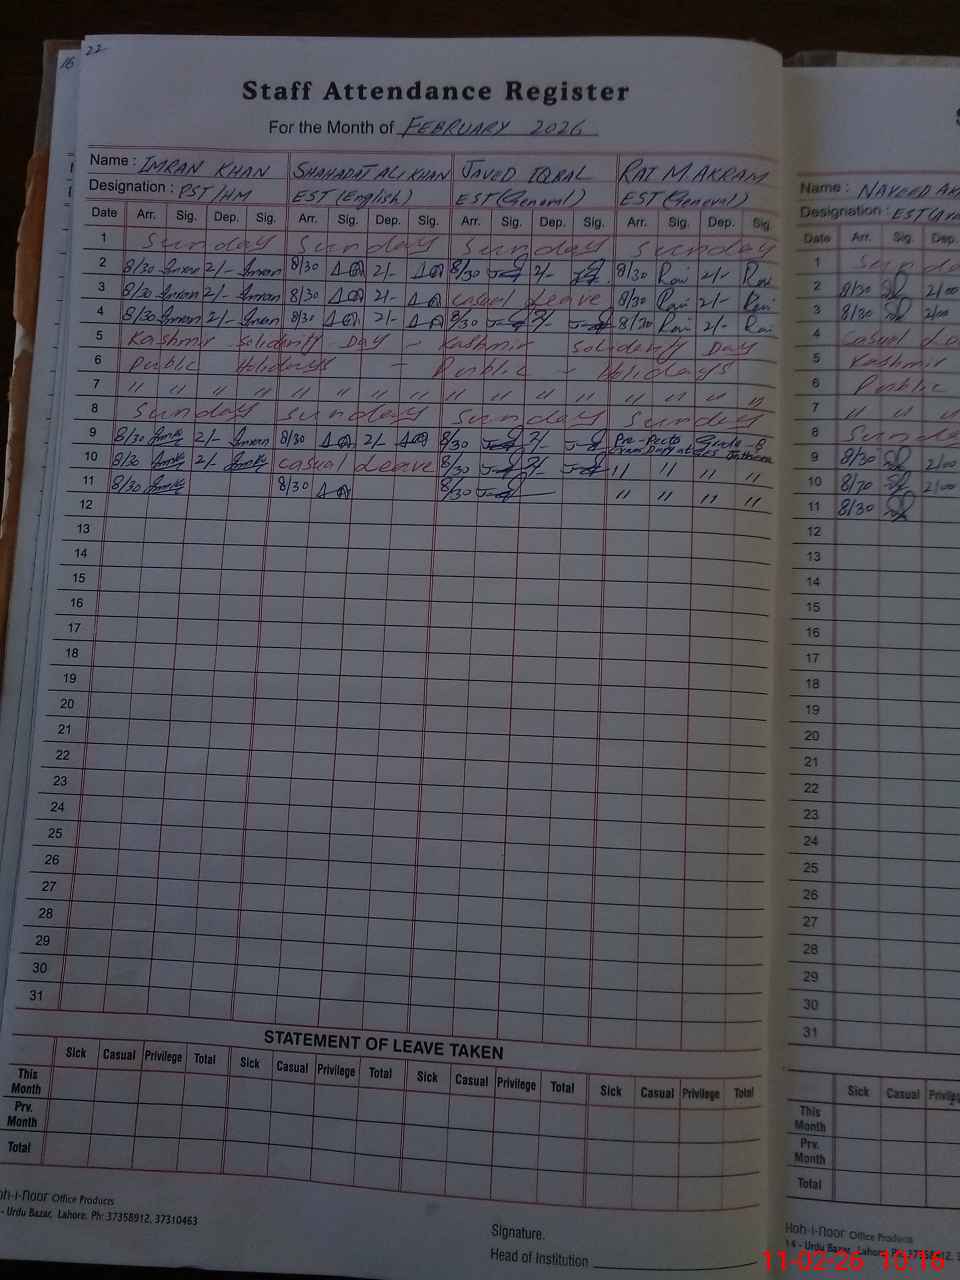 16
22
Staff Attendance Register
For the Month of FEBRUARY 2026
Name : IMRAN KHAN SHAHADAT ALI KHAN JAVED IQBAL RAI M. AKRAM
Designation : PST/HM EST (English) EST (General) EST (General)
Date Arr. Sig. Dep. Sig. Arr. Sig. Dep. Sig. Arr. Sig. Dep. Sig. Arr. Sig. Dep. Sig.
1 Sunday Sunday Sunday Sunday
2 8/30 Imran 2/- Imran 8/30 2/- 8/30 2/- 8/30 Rai 2/- Rai
3 8/30 Imran 2/- Imran 8/30 2/- Casual Leave 8/30 Rai 2/- Rai
4 8/30 Imran 2/- Imran 8/30 2/- 8/30 2/- 8/30 Rai 2/- Rai
5 Kashmir Solidarity Day - Kashmir Solidarity Day
6 Public Holidays - Public - Holidays
7 " " " " " " " " " " " " " " " "
8 Sunday Sunday Sunday Sunday
9 8/30 2/- Imran 8/30 2/- 8/30 2/-
10 8/30 2/- Casual Leave 8/30 2/- " " " "
11 8/30 8/30 8/30 " " " "
12
13
14
15
16
17
18
19
20
21
22
23
24
25
26
27
28
29
30
31
STATEMENT OF LEAVE TAKEN
Sick Casual Privilege Total Sick Casual Privilege Total Sick Casual Privilege Total Sick Casual Privilege Total
This Month
Prv. Month
Total
oh-i-noor Office Products
- Urdu Bazar, Lahore. Ph: 37358912, 37310463
Signature.
Head of Institution
S
Name : NAVEED
Designation : EST
Date Arr. Sig. Dep.
1
2 8/30 2/00
3 8/30 2/00
4 Casual
5 Kashmir
6 Public
7 " " "
8
9 8/30 2/00
10 8/30 2/00
11 8/30
12
13
14
15
16
17
18
19
20
21
22
23
24
25
26
27
28
29
30
31
Sick Casual
This Month
Prv. Month
Total
Koh-i-noor Office Products
14 - Urdu Bazar, Lahore. Ph:
11-02-26 10:16